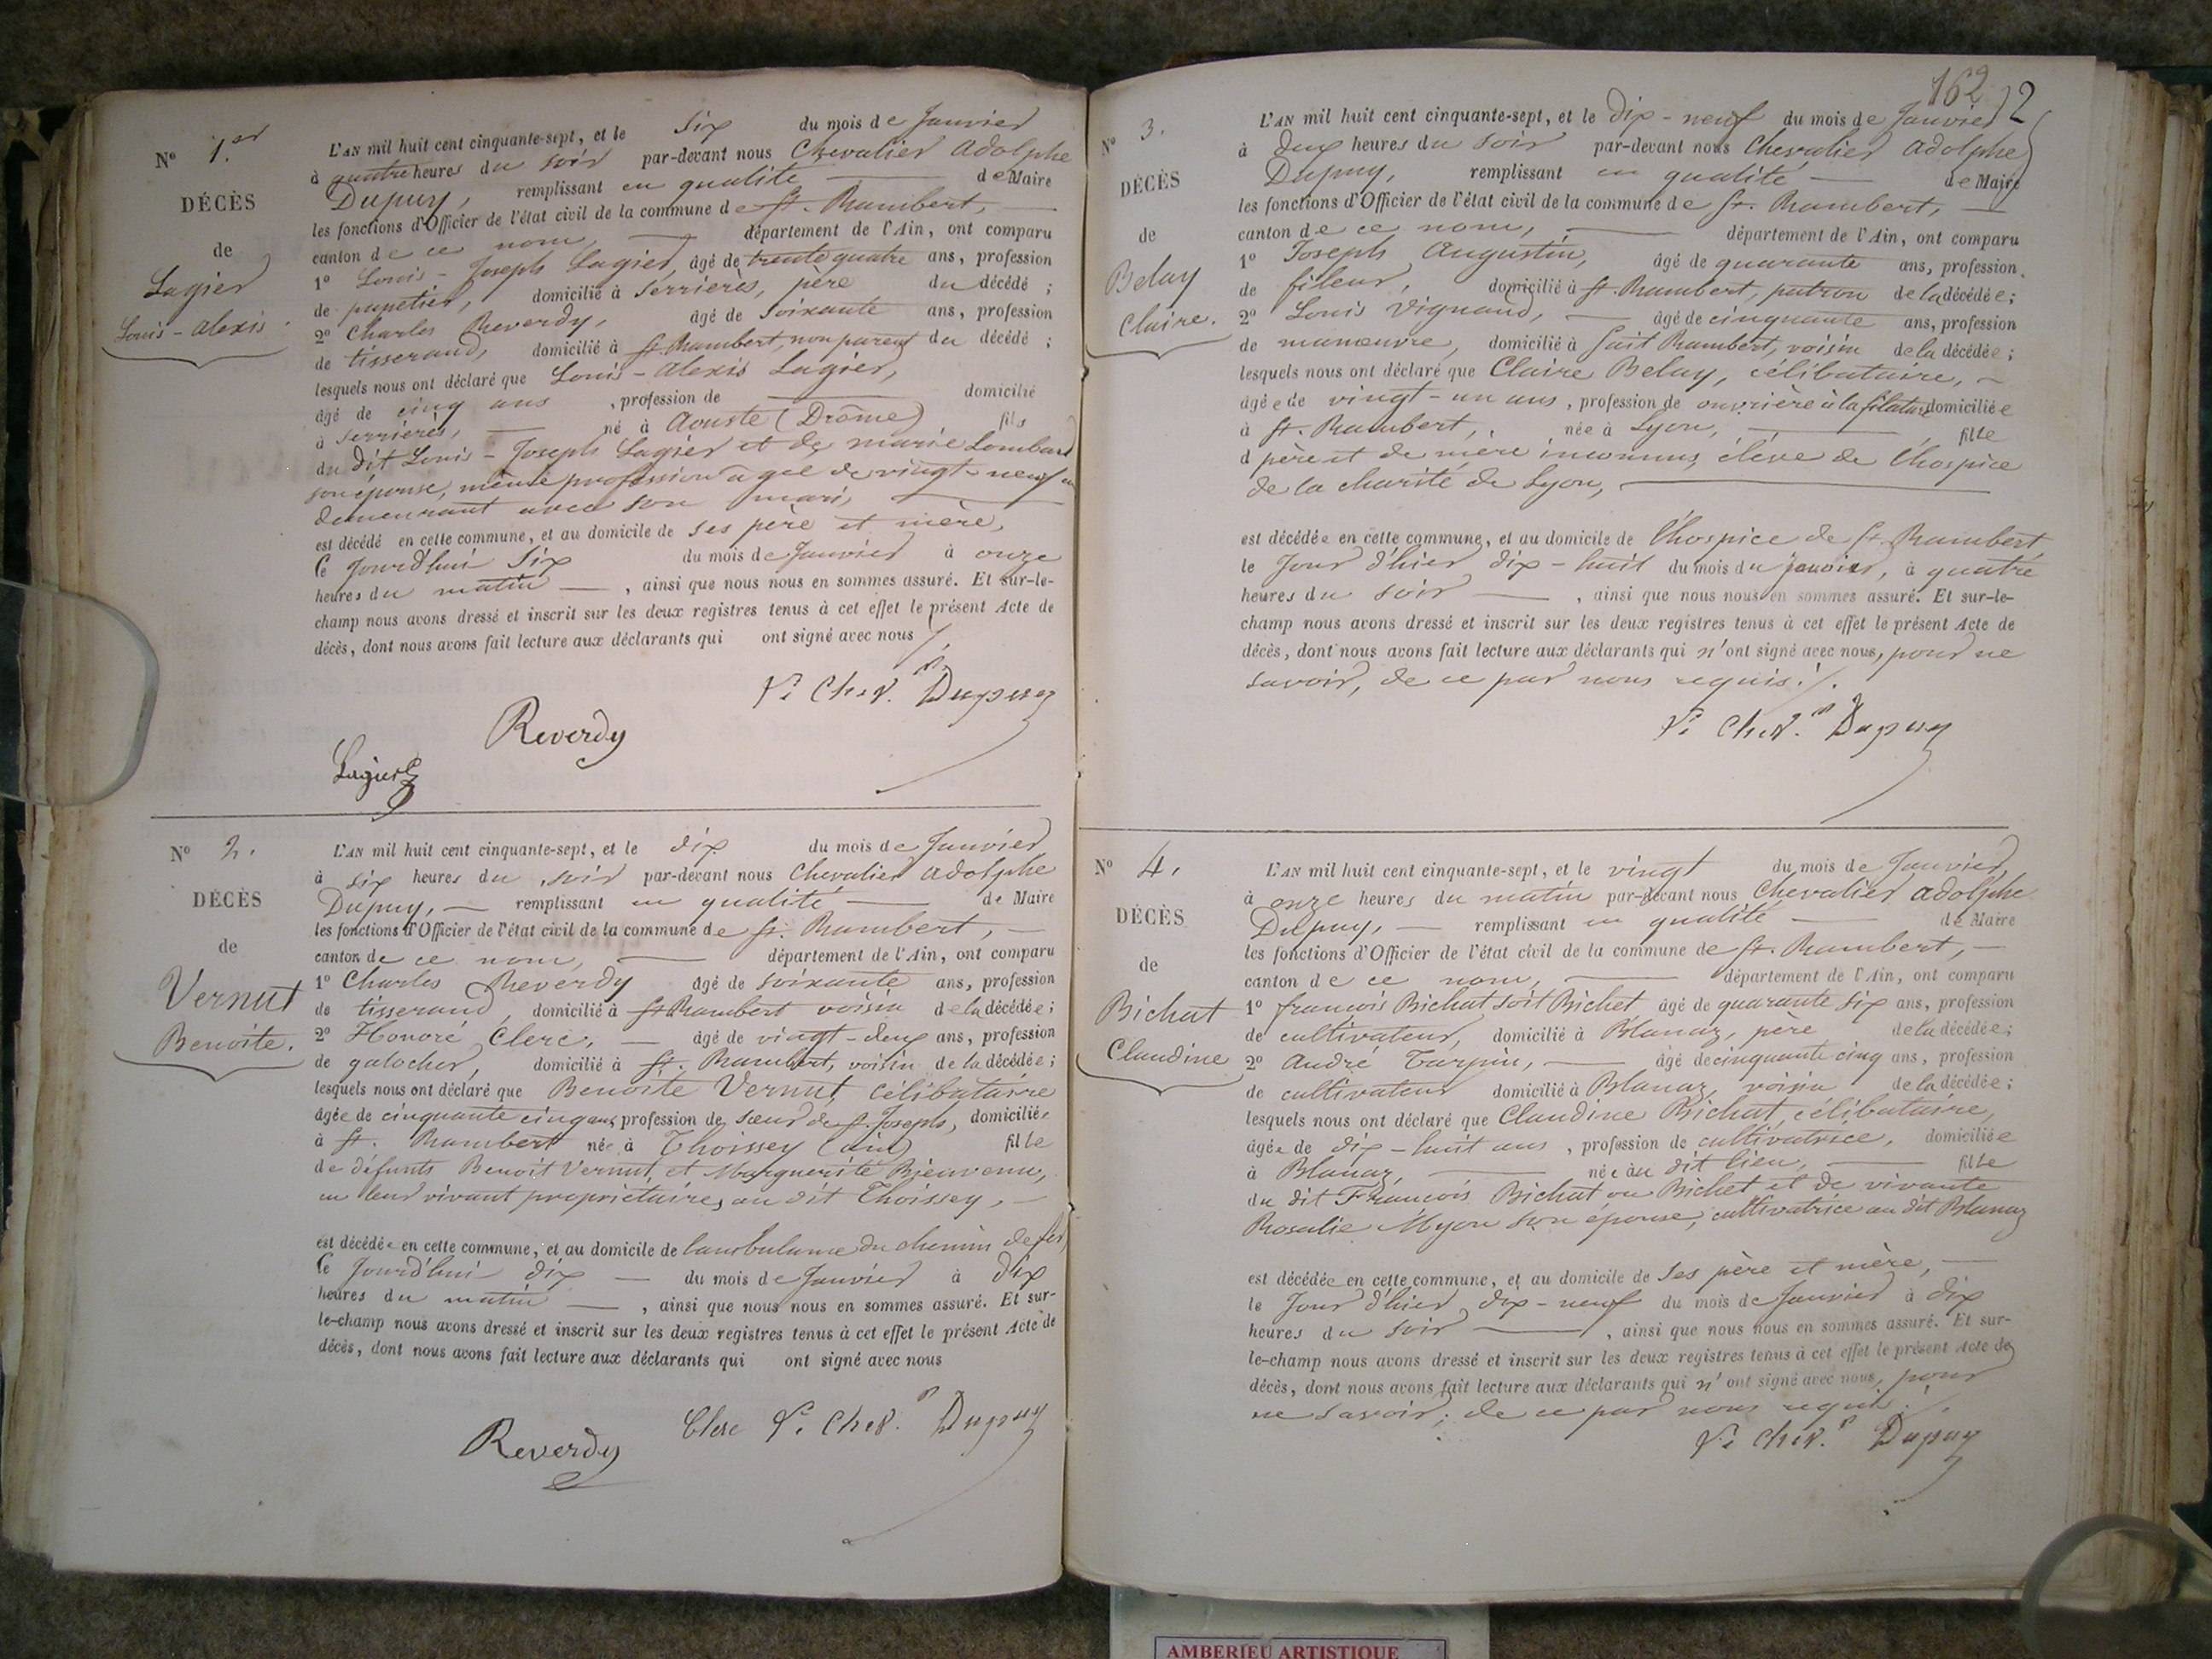 No 1.er
DÉCÈS
de
Lagier
Louis-Alexis.
L'AN mil huit cent cinquante-sept, et le six du mois de Janvier
à quatre heures du soir par-devant nous Chevalier Adolphe
Dupuy, remplissant en qualité de Maire
les fonctions d'Officier de l'état civil de la commune de St. Rambert,
canton de ce nom, département de l'Ain, ont comparu
1º Louis-Joseph Lagier, âgé de trente quatre ans, profession
de papetier, domicilié à Serrières, père du décédé ;
2º Charles Reverdy, âgé de soixante ans, profession
de tisserand, domicilié à St. Rambert, non parent du décédé ;
lesquels nous ont déclaré que Louis-Alexis Lagier,
âgé de cinq ans, profession de domicilié
à Serrières, né à Aouste (Drôme) fils
du dit Louis-Joseph Lagier et de marie Lombard
son épouse, même profession agée de vingt-neuf
demeurant avec son mari,
est décédé en cette commune, et au domicile de ses père et mère,
le Jourd'hui six du mois de Janvier à onze
heures du matin, ainsi que nous nous en sommes assuré. Et sur-le-
champ nous avons dressé et inscrit sur les deux registres tenus à cet effet le présent Acte de
décès, dont nous avons fait lecture aux déclarants qui ont signé avec nous
Chev. Dupuy
Reverdy
Lagier
No 2.
DÉCÈS
de
Vernut
Benoite.
L'AN mil huit cent cinquante-sept, et le dix du mois de Janvier
à six heures du soir par-devant nous Chevalier Adolphe
Dupuy, remplissant en qualité de Maire
les fonctions d'Officier de l'état civil de la commune de St. Rambert,
canton de ce nom, département de l'Ain, ont comparu
1º Charles Reverdy âgé de soixante ans, profession
de tisserand, domicilié à St Rambert voisin de la décédée ;
2º Honoré Clerc, âgé de vingt-deux ans, profession
de galocher, domicilié à St. Rambert, voisin de la décédée ;
lesquels nous ont déclaré que Benoite Vernut, célibataire
âgée de cinquante cinq ans, profession de sœur de St. Joseph, domiciliée
à St. Rambert née à Thoissey (ain) fille
de défunts Benoit Vernut, et Marguerite Bienvenu,
en leur vivant propriétaires, au dit Thoissey,
est décédée en cette commune, et au domicile de l'ambulance du chemin de fer,
le Jourd'hui dix du mois de Janvier à dix
heures du matin, ainsi que nous nous en sommes assuré. Et sur-
le-champ nous avons dressé et inscrit sur les deux registres tenus à cet effet le présent Acte de
décès, dont nous avons fait lecture aux déclarants qui ont signé avec nous
Clerc Chev. Dupuy
Reverdy
162 2
No 3.
DÉCÈS
de
Belay
Claire.
L'AN mil huit cent cinquante-sept, et le dix-neuf du mois de Janvier
à deux heures du soir par-devant nous Chevalier Adolphe
Dupuy, remplissant en qualité de Maire
les fonctions d'Officier de l'état civil de la commune de St. Rambert,
canton de ce nom, département de l'Ain, ont comparu
1º Joseph Augustin, âgé de quarante ans, profession
de fileur, domicilié à St. Rambert, patron de la décédée ;
2º Louis Vignand, âgé de cinquante ans, profession
de manœuvre, domicilié à Saint Rambert, voisin de la décédée ;
lesquels nous ont déclaré que Claire Belay, célibataire,
âgée de vingt-un ans, profession de ouvrière à la filature domiciliée
à St. Rambert, née à Lyon, fille
d père et de mère inconnus, élève de l'hospice
de la charité de Lyon,
est décédée en cette commune, et au domicile de l'hospice de St. Rambert
le Jour d'hier dix-huit du mois du janvier, à quatre
heures du soir, ainsi que nous nous en sommes assuré. Et sur-le-
champ nous avons dressé et inscrit sur les deux registres tenus à cet effet le présent Acte de
décès, dont nous avons fait lecture aux déclarants qui n'ont signé avec nous, pour ne
savoir, de ce par nous requis.
Chev. Dupuy
No 4.
DÉCÈS
de
Bichat
Claudine
L'AN mil huit cent cinquante-sept, et le vingt du mois de Janvier,
à onze heures du matin par-devant nous Chevalier Adolphe
Dupuy, remplissant en qualité de Maire
les fonctions d'Officier de l'état civil de la commune de St. Rambert,
canton de ce nom, département de l'Ain, ont comparu
1º françois Bichat soit Bichet âgé de quarante six ans, profession
de cultivateur, domicilié à Blanaz, père de la décédée ;
2º André Turpin, âgé de cinquante cinq ans, profession
de cultivateur domicilié à Blanaz, voisin de la décédée ;
lesquels nous ont déclaré que Claudine Bichat, célibataire,
âgée de dix-huit ans, profession de cultivatrice, domiciliée
à Blanaz, née au dit lieu, fille
du dit François Bichat ou Bichet et de vivante
Rosalie Myon son épouse, cultivatrice au dit Blanaz
est décédée en cette commune, et au domicile de ses père et mère,
le Jour d'hier dix-neuf du mois de Janvier à dix
heures du soir, ainsi que nous nous en sommes assuré. Et sur-
le-champ nous avons dressé et inscrit sur les deux registres tenus à cet effet le présent Acte de
décès, dont nous avons fait lecture aux déclarants qui n'ont signé avec nous, pour
ne savoir, de ce par nous requis.
Chev. Dupuy
AMBERIEU ARTISTIQUE